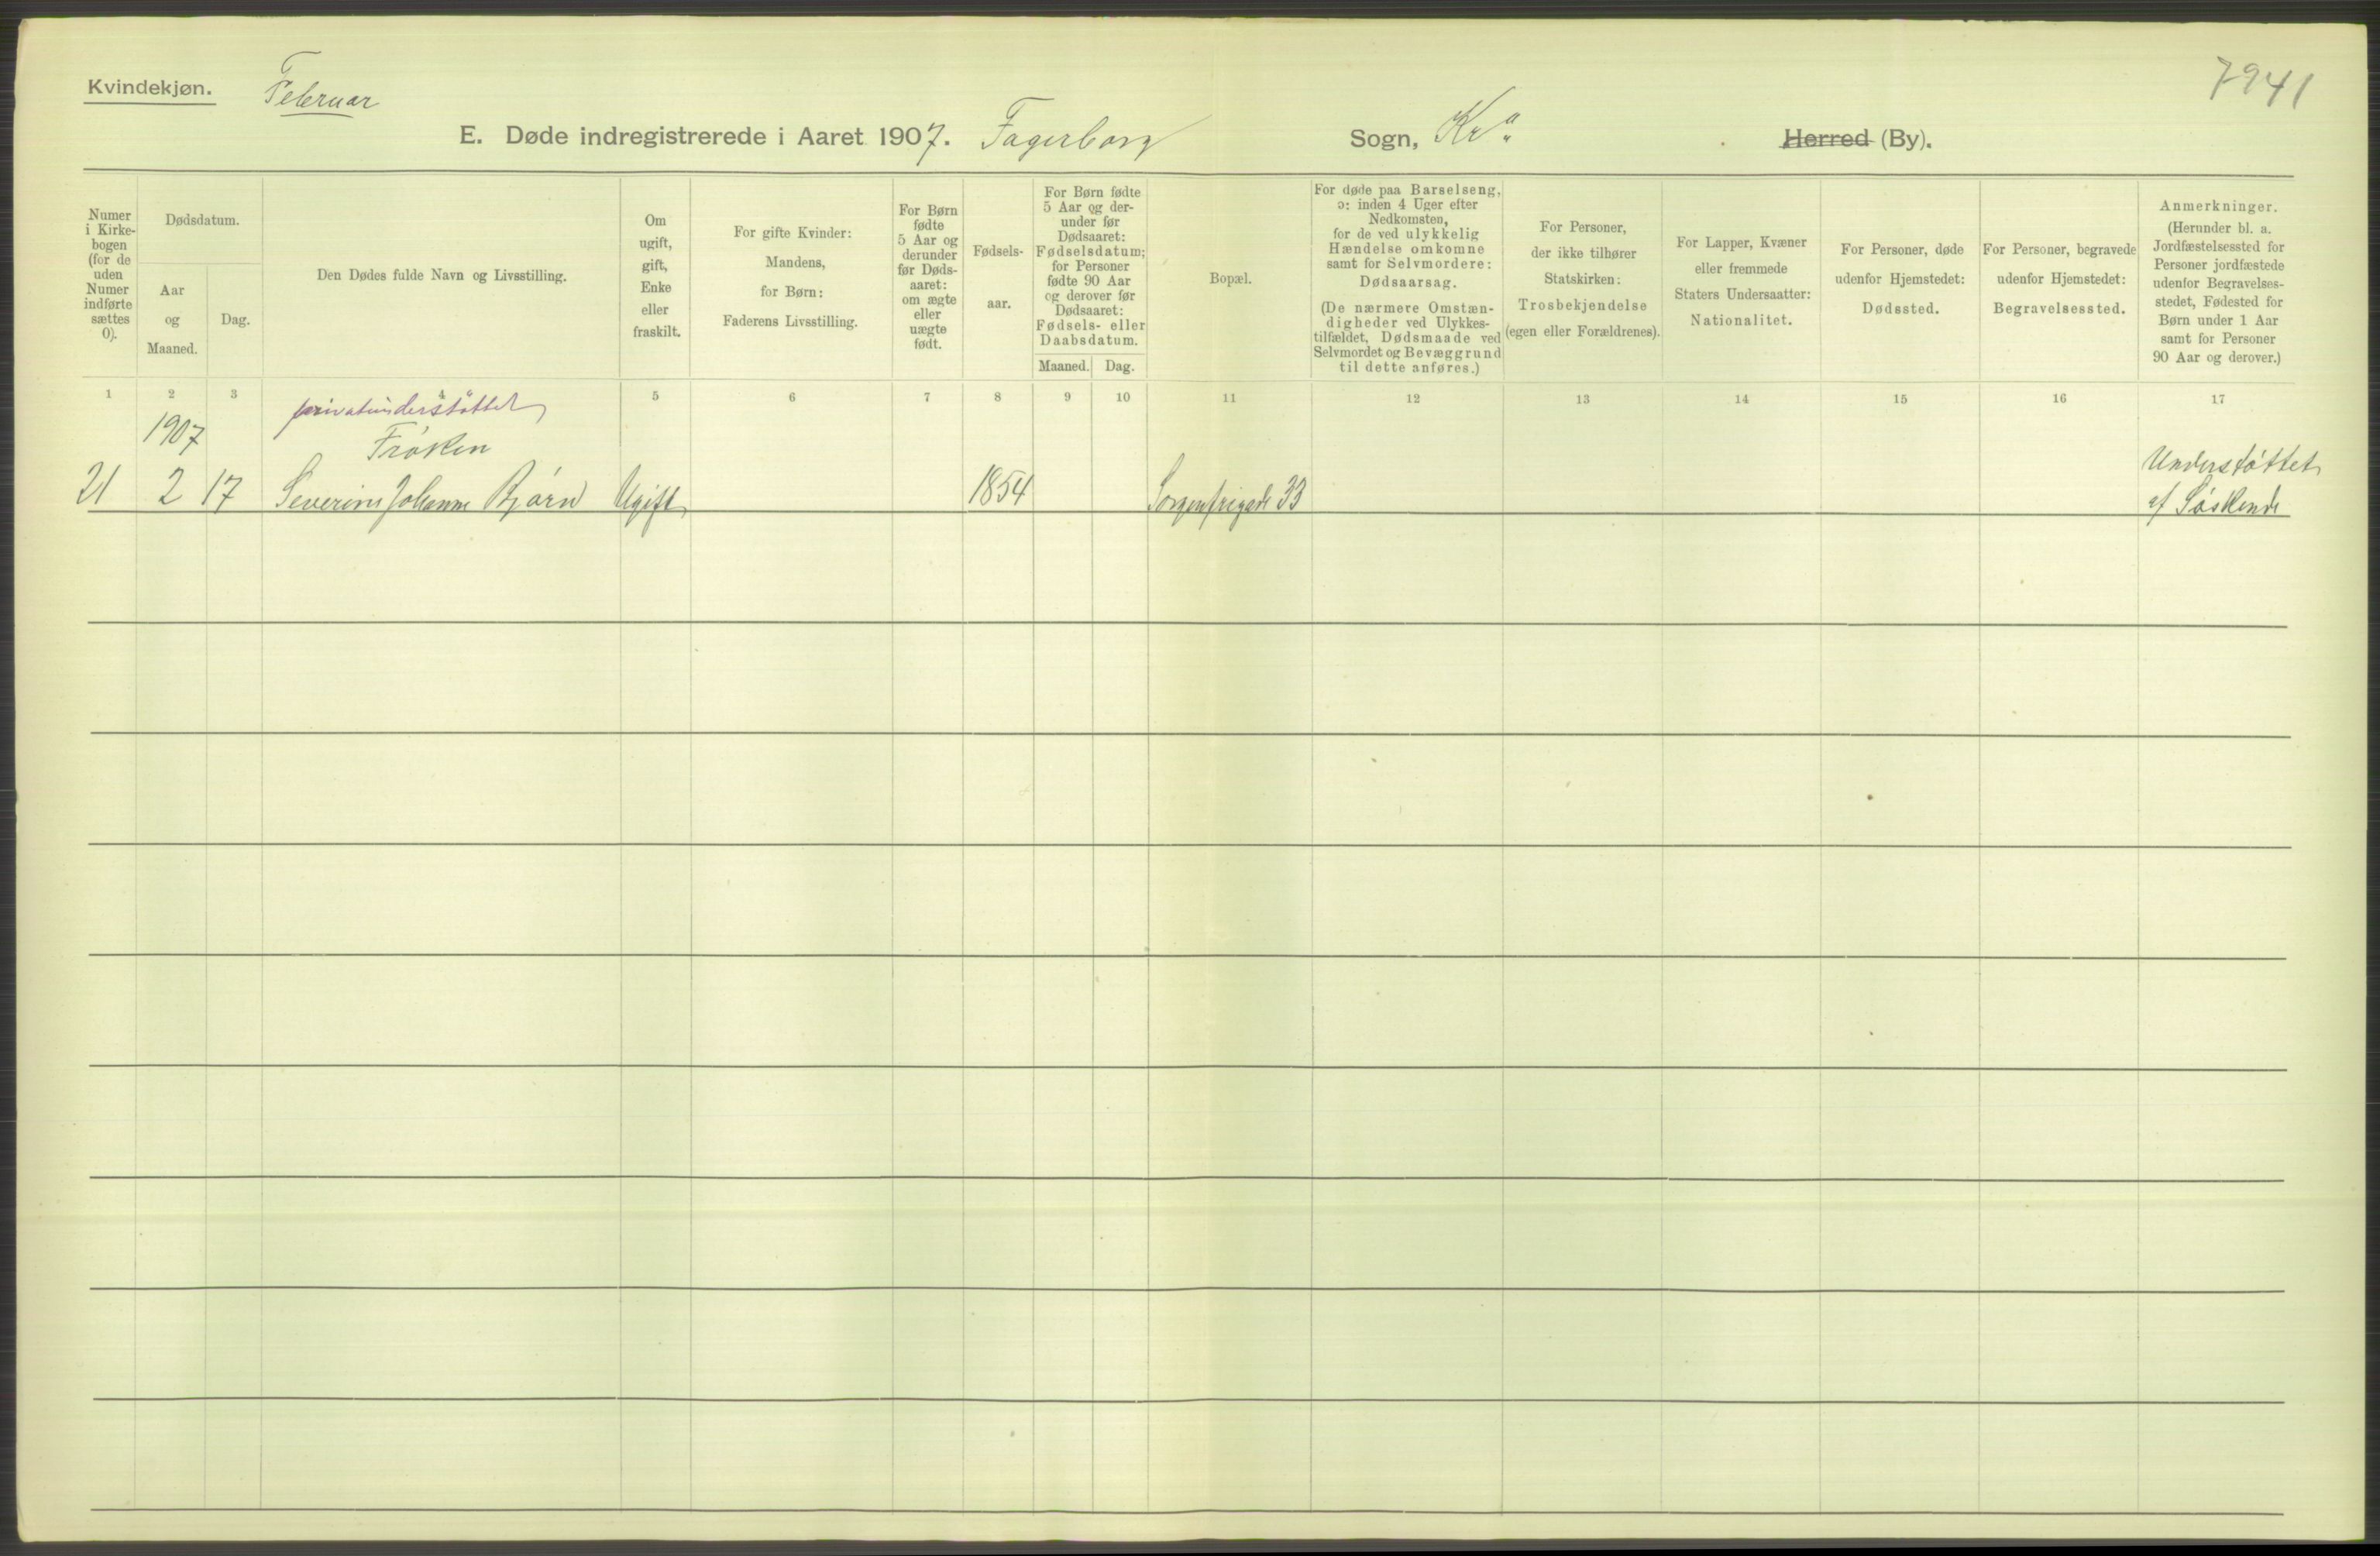 Kvindekjøn.
Februar
7941
E. Døde indregistrerede i Aaret 1907. Fagerborg Sogn, Kra Herred (By).
Numer
i Kirke-
bogen
(for de
uden
Numer
indførte
sættes
0).
Dødsdatum.
Aar
og
Maaned.
Dag.
Den Dødes fulde Navn og Livsstilling.
Om
ugift,
gift,
Enke
eller
fraskilt.
For gifte Kvinder:
Mandens,
for Børn:
Faderens Livsstilling.
For Børn
fødte
5 Aar og
derunder
før Døds-
aaret:
om ægte
eller
uægte
født.
Fødsels-
aar.
For Børn fødte
5 Aar og der-
under før
Dødsaaret:
Fødselsdatum;
for Personer
fødte 90 Aar
og derover før
Dødsaaret:
Fødsels- eller
Daabsdatum.
Maaned.
Dag.
Bopæl.
For døde paa Barselseng,
ɔ: inden 4 Uger efter
Nedkomsten,
for de ved ulykkelig
Hændelse omkomne
samt for Selvmordere:
Dødsaarsag.
(De nærmere Omstæn-
digheder ved Ulykkes-
tilfældet, Dødsmaade ved
Selvmordet og Bevæggrund
til dette anføres.)
For Personer,
der ikke tilhører
Statskirken:
Trosbekjendelse
(egen eller Forældrenes).
For Lapper, Kvæner
eller fremmede
Staters Undersaatter:
Nationalitet.
For Personer, døde
udenfor Hjemstedet:
Dødssted.
For Personer, begravede
udenfor Hjemstedet:
Begravelsessted.
Anmerkninger.
(Herunder bl. a.
Jordfæstelsessted for
Personer jordfæstede
udenfor Begravelses-
stedet, Fødested for
Børn under 1 Aar
samt for Personer
90 Aar og derover.)
1 2 3 4 5 6 7 8 9 10 11 12 13 14 15 16 17
privatunderstøttet
1907
Frøken
Understøttet
21 2 17 Severine Johanne Bjørn Ugift 1854 Sorgenfrigade 33
af Søskende